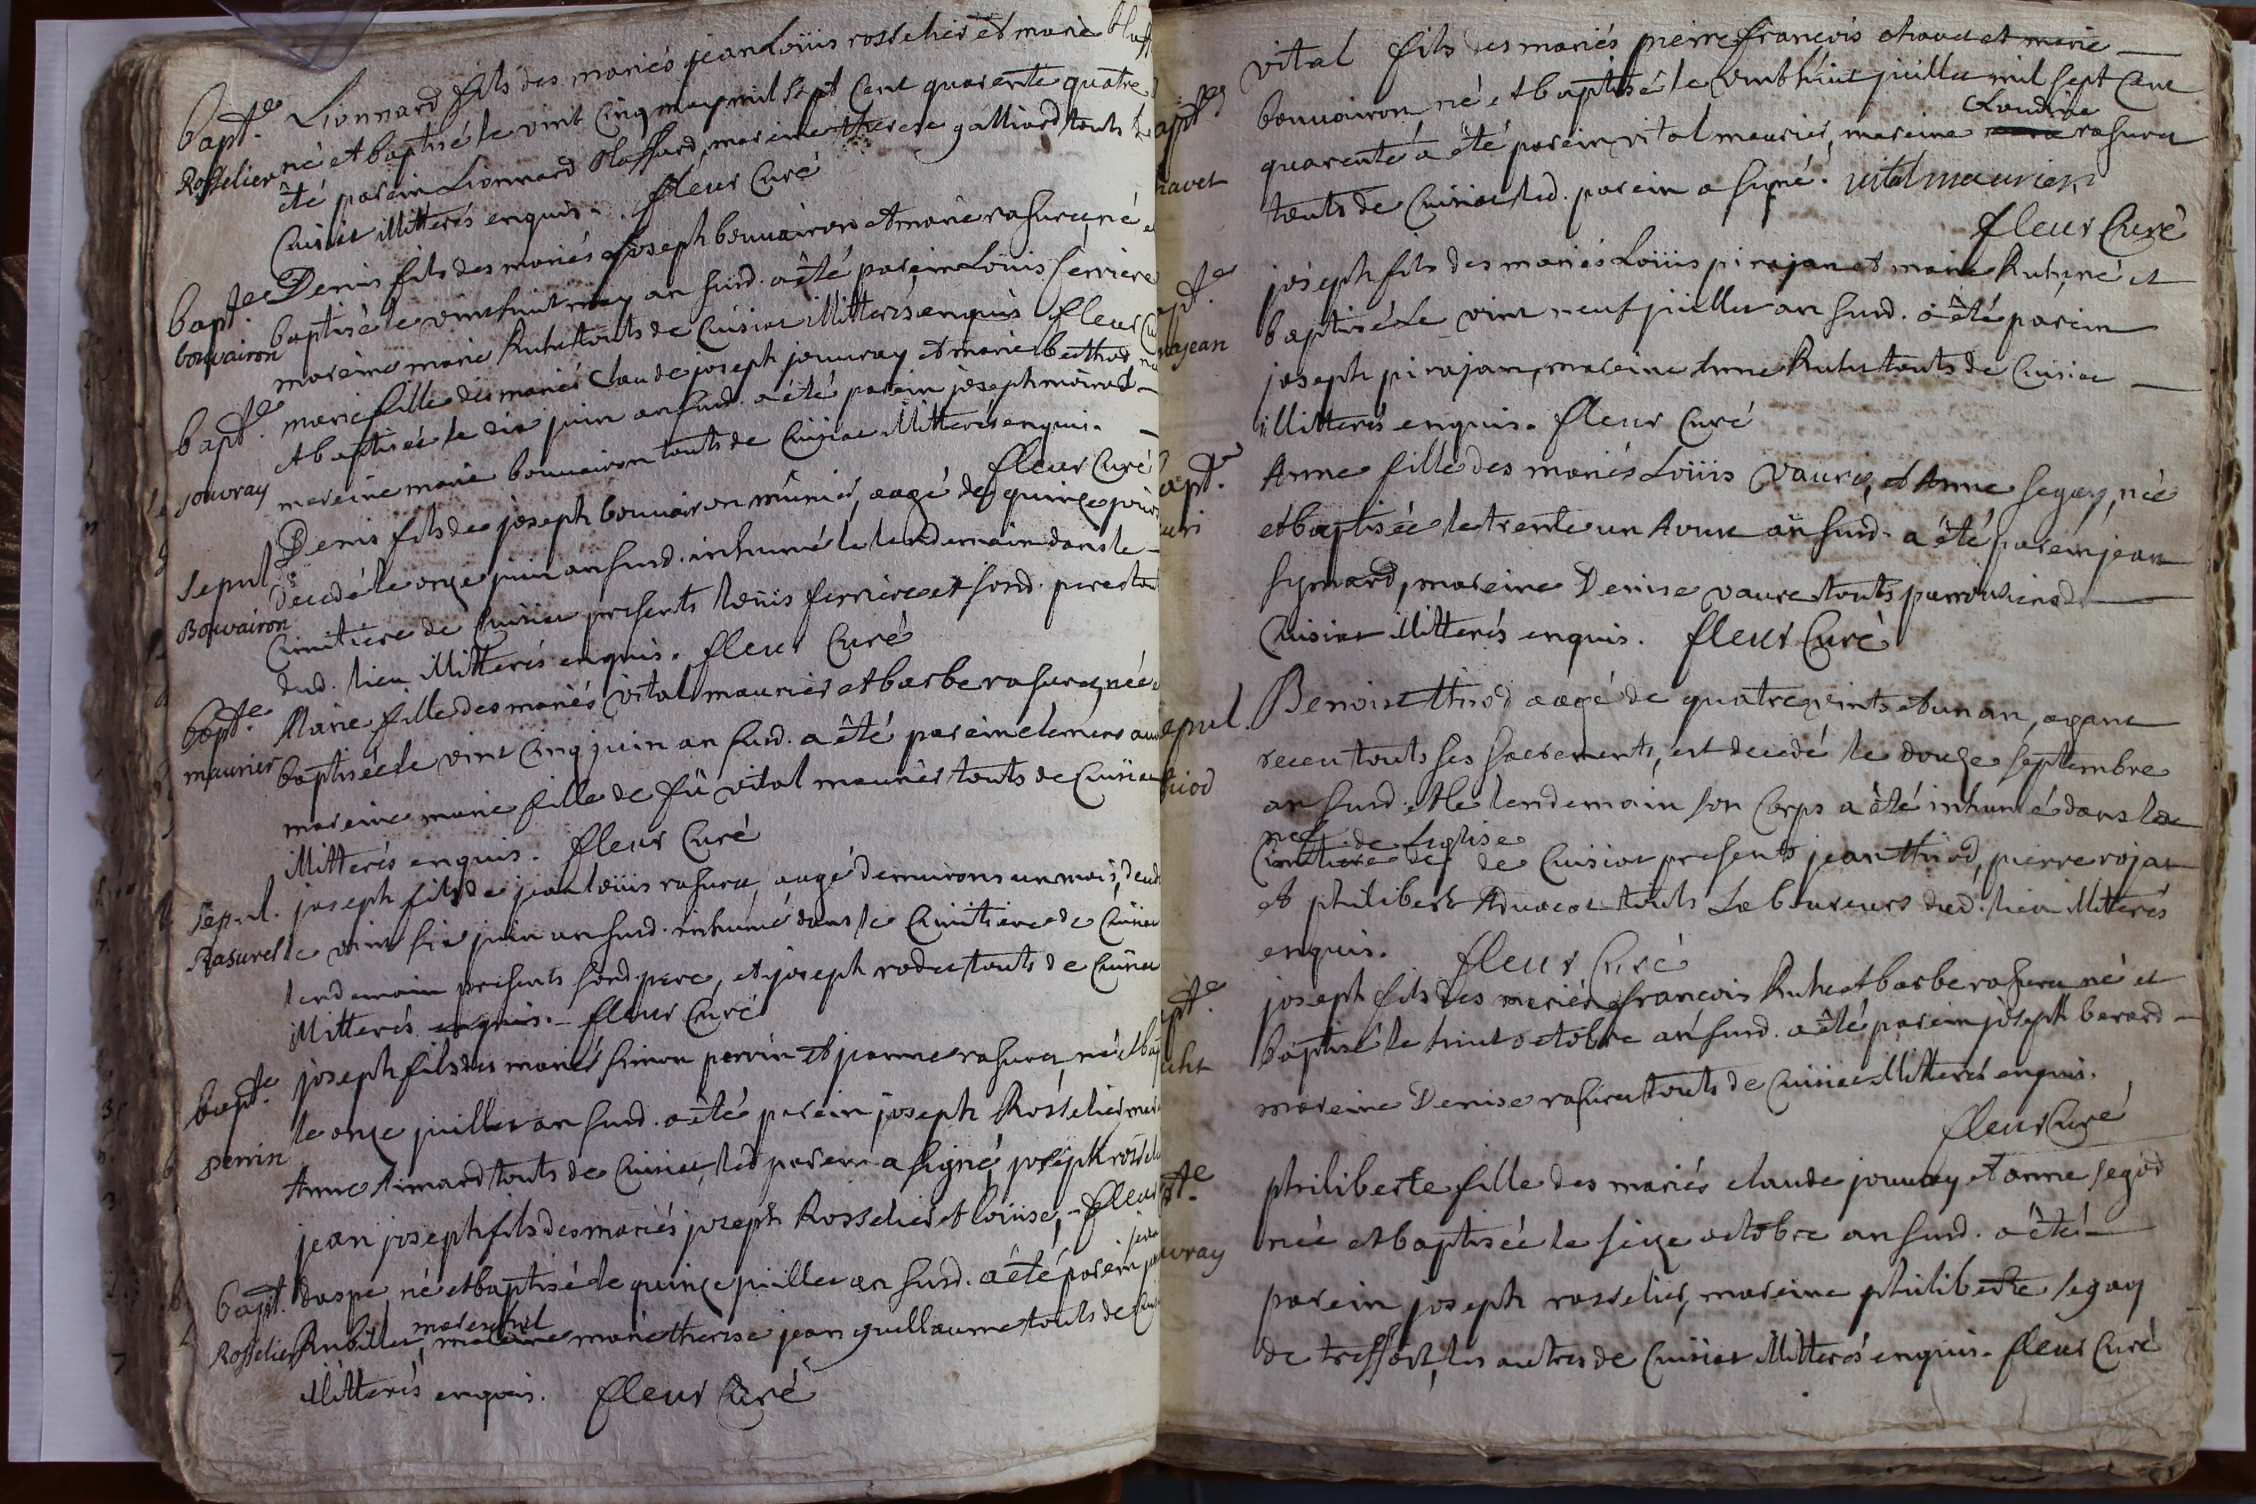 bapt.e Lionnard fils des mariés jean Loüis rosselier et marie
Rosselier né et baptisé le vint cinq may mil sept cent quarente quatre
été parein Lionnard Blassard, mareine therese galliard touts
Cuisiat illitterés enquis. fleur Curé
bapt.e Denis fils des mariés joseph bouuairon et marie rasurel, né et
bouvairon baptisé le vint huit may an susd. a été parein Loüis ferriere
mareine marie Ruhet touts de Cuisiat illitterés enquis fleur Cu
bapt.e marie fille des mariés Claude joseph jouuray et marie bethod né
jouvray et baptisée le dix juin an susd. a été parein joseph moirod
mareine marie bouuairon touts de Cuisiat illitterés enquis.
fleur Curé
Sepul. Denis fils de joseph bouuairon mûnier, aagé de quinze jours
Bouvairon decedé le onze juin an susd. inhumé le lendemain dans le
Cimitiere de Cuisiat presents loüis ferriere et sond. pere touts
dud. lieu illitterés enquis. fleur Curé
bapt.e Marie fille des mariés vital maurier et barbe rasurel, née
maurier baptisée le vint cinq juin an susd. a été parein clement
mareine marie fille de fû vital maurier touts de Cuisiat
illitterés enquis. fleur Curé
Sepul. joseph fils de jean loüis rasurel, aagé d'enuirons un mois, deced
Rasurel le vint six juin an susd. inhumé dans le Cimitiere de Cuisiat
lendemain presents sond pere, et joseph rodet touts de Cuisiat
illitterés enquis. fleur Curé
bapt.e joseph fils des mariés simon perrin et jeanne rasurel, né et bap
perrin le onze juillet an susd. a été parein joseph Rosselier mar
Anne Aimard touts de Cuisiat, led parein a signé, joseph rossel
jean joseph fils des mariés joseph Rosselier et loüise, fleur
bapt. daspe, né et baptisé le quinze juillet an susd. a été parein
Rosselier Rubillet, mareschal mareine marie therese jean guillaume touts de Cui
illitterés enquis. fleur Curé
vital fils des mariés pierre francois chavet et marie
bouuairon né et baptisé le vint huit juillet mil sept Cent
quarente a été parein vital maurier, mareine Claudine rasurel
touts de Cuisiat led. parein a signé. vital maurier
fleur Curé
joseph fils des mariés Loüis pirajean et marie Ruhet, né et
baptisé Le vint neuf juillet an susd. a été parein
joseph pirajean, mareine Anne Ruhet touts de Cuisiat
illitterés enquis. fleur Curé
Anne fille des mariés Loüis Vauri, et Anne segay, née
et baptisée le trente un Aoust an susd. a été parein jean
symard, mareine Denise vauri touts parroissiens de
Cuisiat illitterés enquis. fleur Curé
Sepul. Benoist thiod aagé de quatre vints et un an, ayant
receu touts ses sacrements, est decedé le douze septembre
an susd. et le lendemain son Corps a été inhumé dans la
nef de Leglise
Cimitiere de Cuisiat presents jean thiod, pierre rojat
et philibert Aduocat touts Laboureurs dud. lieu illitterés
enquis. fleur Curé
joseph fils des mariés francois Ruhet et barbe rasurel né et
baptisé le huit octobre an susd. a été parein joseph berard
mareine Denise rasurel touts de Cuisiat illitterés enquis.
fleur Curé
philiberte fille des mariés claude jouuray et anne segod
née et baptisée le seize octobre an susd. a été
parein joseph rosselier, mareine philiberte segay
de treffort, les autres de Cuisiat illitterés enquis. fleur Curé